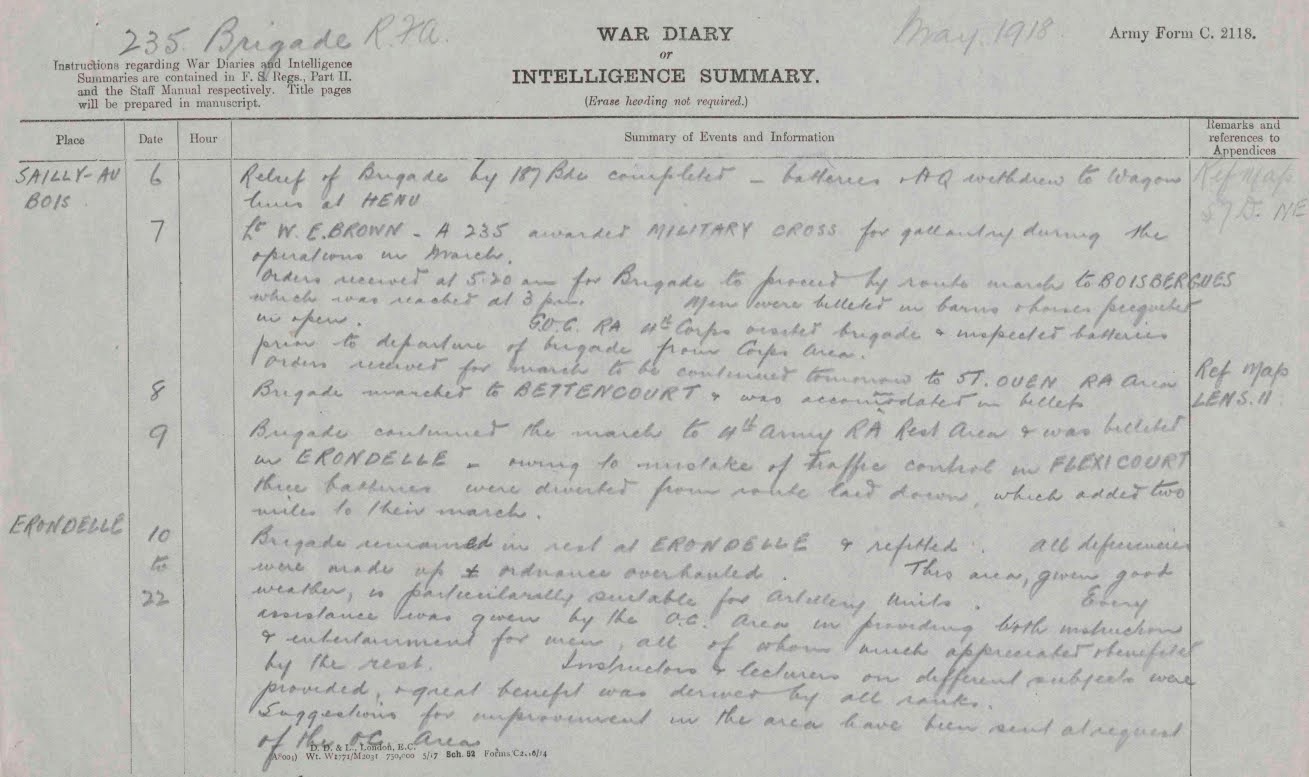 235. Brigade R.F.A.
WAR DIARY
May. 1918
Army Form C. 2118.
or
INTELLIGENCE SUMMARY.
(Erase heading not required.)
Instructions regarding War Diaries and Intelligence
Summaries are contained in F. S. Regs., Part II.
and the Staff Manual respectively. Title pages
will be prepared in manuscript.
Place Date Hour Summary of Events and Information Remarks and
references to
Appendices
SAILLY-AU 6 Relief of Brigade by 187 Bde completed - batteries & HQ withdrew to Wagon Ref Map
BOIS lines at HENU 57 D. NE
7 Lt W. E. BROWN - A 235 awarded MILITARY CROSS for gallantry during the
operations in March.
Orders received at 5.20 am for Brigade to proceed by route march to BOISBERGUES
which was reached at 3 pm. Men were billeted in barns & horses picqueted
in open. G.O.C. RA 4th Corps visited brigade & inspected batteries
prior to departure of brigade from Corps Area.
Orders received for march to be continued tomorrow to ST. OUEN RA Area Ref Map
8 Brigade marched to BETTENCOURT & was accommodated in billets LENS. 11
9 Brigade continued the march to 4th Army RA Rest Area & was billeted
in ERONDELLE - owing to mistake of traffic control in FLEXICOURT
three batteries were diverted from route laid down, which added two
miles to their march.
ERONDELLE 10 Brigade remained in rest at ERONDELLE & refitted. All deficiencies
to were made up & ordnance overhauled. This area, given good
22 weather, is particularally suitable for Artillery Units. Every
assistance was given by the O.C. Area in providing both instruction
& entertainment for men, all of whom much appreciated & benefited
by the rest. Instructors & lecturers on different subjects were
provided, & great benefit was derived by all ranks.
Suggestions for improvement in the area have been sent at request
of the OC Area
D. D. & L., London, E.C.
(A8001) Wt. W1771/M2031 750,000 5/17 Sch. 52 Forms/C2118/14